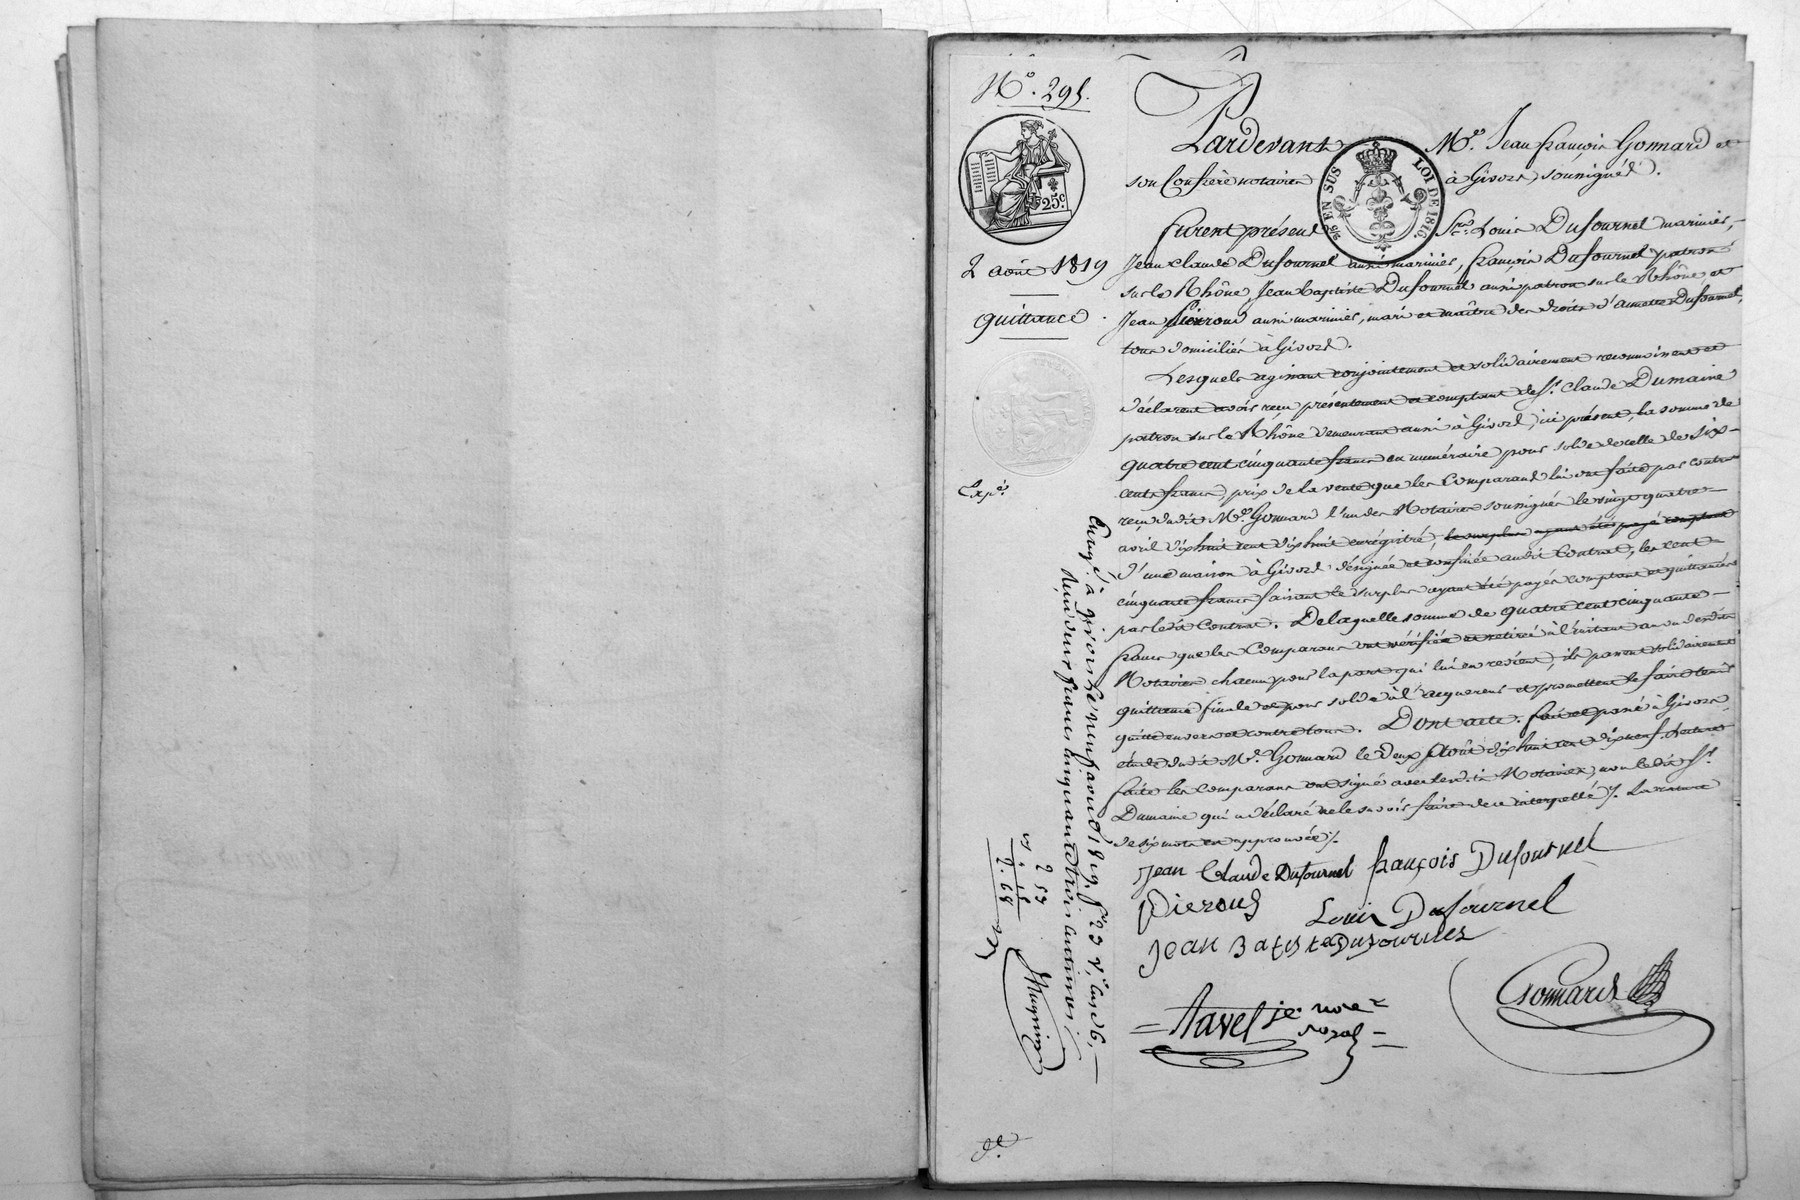 N.° 295.
25.c
2 août 1819
quittance
Exp.é
Pardevant M.e Jean françois Gonnard et
son Confrère notaires à Givors, soussignés.
furent présens S.rs Louis Dufournel marinier,
Jean Claude Dufournel aussi marinier, françois Dufournel patron
sur le Rhône, Jean Baptiste Dufournel aussi patron sur le Rhône et
Jean Pierroud aussi marinier, mari et maître des droits d'annette Dufournel,
tous domiciliés à Givors.
Lesquels agissant conjointement et solidairement reconnoissent et
déclarent avoir reçu présentement et comptant de S.r Claude Dumaine
patron sur le Rhône demeurant aussi à Givors, ici présent, la somme de
quatre cent cinquante francs en numéraire pour solde de celle de six
cents francs, prix de la vente que les Comparans lui ont faite par contrat
reçu dudit M.e Gonnard l'un des Notaires soussignés le vingt quatre
avril dix huit cent dix huit enrégistré, le surplus ayant été payé comptant
d'une maison à Givors désignée et confinée audit Contrat, les cent
cinquante francs faisant le surplus ayant été payés comptant et quittancés
par ledit Contrat. De laquelle somme de quatre cent cinquante
francs que les Comparans ont vérifiée et retirée à l'instant au vu desdits
Notaires chacun pour la part qui lui en revient, ils passent solidairement
quittance finale et pour solde à l'acquereur et promettent le faire tenir
quitte envers et contre tous. Dont acte. fait et passé à Givors
étude dudit M.e Gonnard le deux Août dix huit cent dix neuf. Lecture
faite les comparans ont signé avec lesdits Notaires, non ledit S.r
Dumaine qui a déclaré ne le savoir faire de ce interpellé ./. La rature
de six mots est approuvée ./.
Jean Claude Dufournel françois Dufournel
Pieroud Louis Dufournel
Jean Batiste Dufournel
Gonnard
Tavel je. no.re
royal
Enreg.é à givors le neuf août 1819, f.o 23 v.o cases 6,
Reçu deux francs cinquante trois centimes ./.
2 53
2. 68
EN SUS
LOI DE 1816.